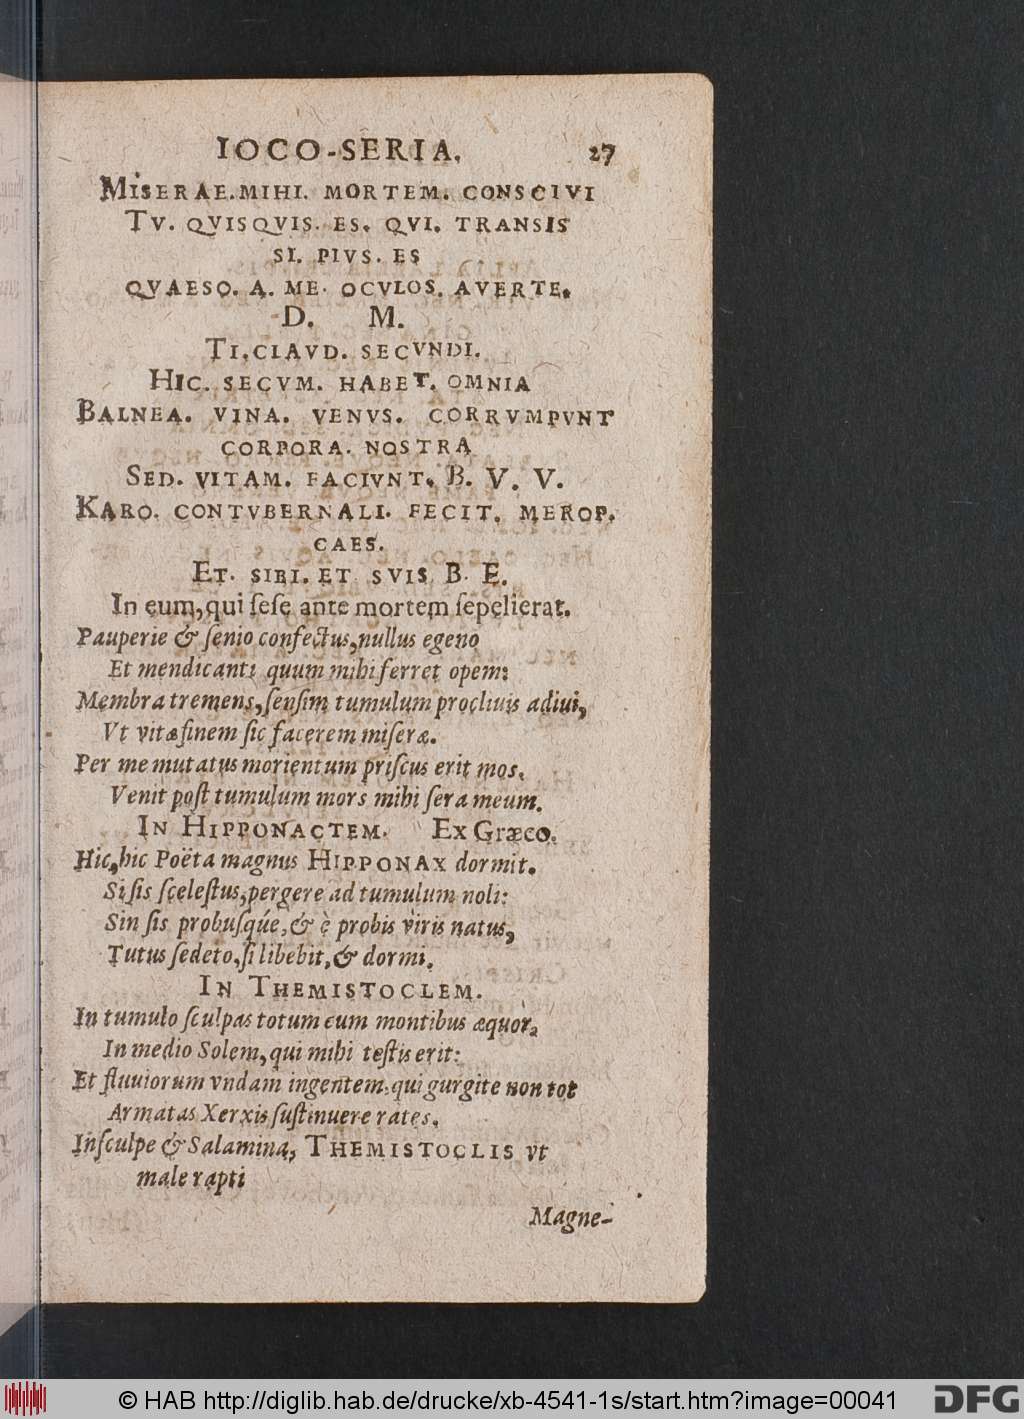 IOCO-SERIA. 27
MISERAE. MIHI. MORTEM. CONSCIVI
TV. QVISQVIS. ES. QVI. TRANSIS
SI. PIVS. ES
QVAESO. A. ME. OCVLOS. AVERTE.
D. M.
TI. CLAVD. SECVNDI.
HIC. SECVM. HABET. OMNIA
BALNEA. VINA. VENVS. CORRVMPVNT
CORPORA. NOSTRA
SED. VITAM. FACIVNT. B. V. V.
KARO. CONTVBERNALI. FECIT. MEROP.
CAES.
ET. SIBI. ET SVIS. B. E.
In eum, qui ſeſe ante mortem ſepelierat.
Pauperie & ſenio confectus, nullus egeno
Et mendicanti quum mihi ferret opem:
Membra tremens, ſenſim tumulum proclivis adiui,
Vt vitæ finem ſic facerem miſeræ.
Per me mutatus morientum priſcus erit mos.
Venit poſt tumulum mors mihi ſera meum.
IN HIPPONACTEM. Ex Græco.
Hic, hic Poëta magnus HIPPONAX dormit.
Si ſis ſceleſtus, pergere ad tumulum noli:
Sin ſis probuſqúe, & è probis viris natus,
Tutus ſedeto, ſi libebit, & dormi.
IN THEMISTOCLEM.
In tumulo ſculpas totum cum montibus æquor,
In medio Solem, qui mihi teſtis erit:
Et fluuiorum vndam ingentem, qui gurgite non tot
Armatas Xerxis ſuſtinuere rates.
Inſculpe & Salamina, THEMISTOCLIS vt
male rapti
Magne-
© HAB http://diglib.hab.de/drucke/xb-4541-1s/start.htm?image=00041
DFG